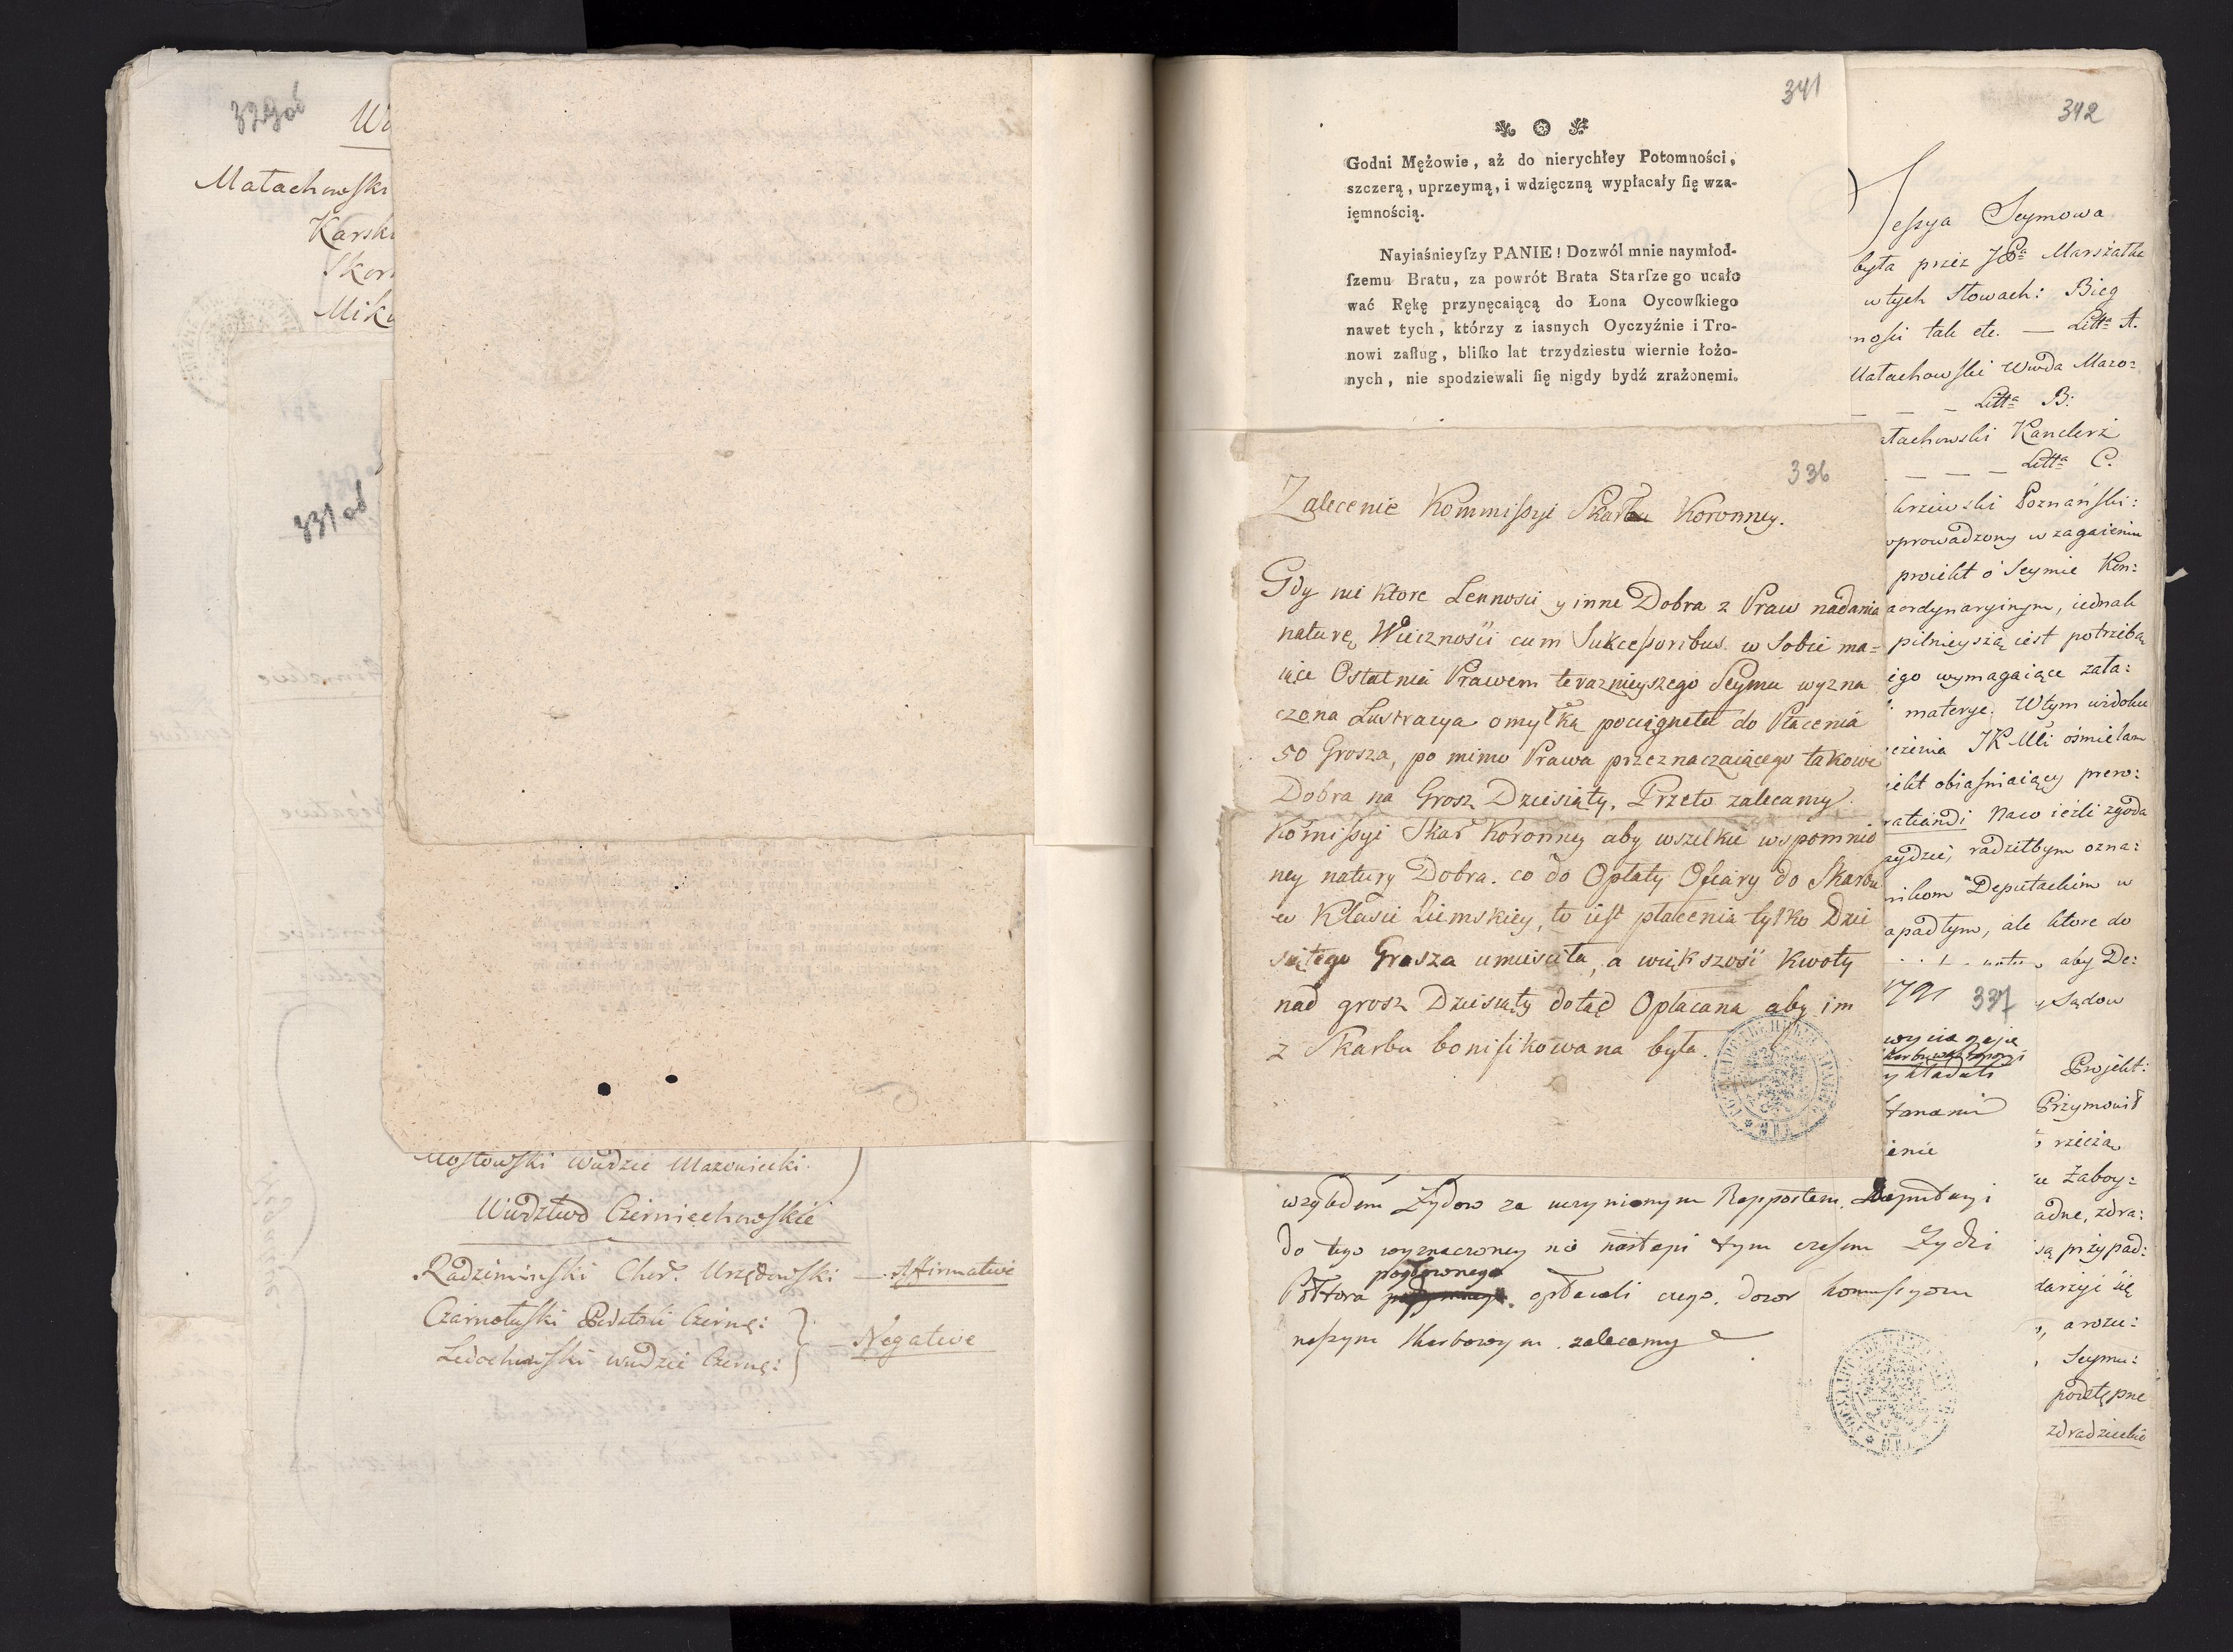 329od
Małachowski
Karski
331od
Mostowski Wwdzic Mazowiecki.
Wwdztwo Czerniechowskie
Radzimiński Chor. Urzędowski — Affirmative
Ledochowski Wwdzic Czernę:
— Negative
341
Godni Mężowie, aż do nierychłey Potomności,
szczerą, uprzeymą, i wdzięczną wypłacały ſię wza-
ięmnością.
Nayiaśnieyſzy PANIE! Dozwól mnie naymłod-
ſzemu Bratu, za powrót Brata Starſzego ucało
wać Rękę przynęcaiącą do Łona Oycowſkiego
nawet tych, którzy z iasnych Oyczyźnie i Tro-
nowi zaſług, bliſko lat trzydziestu wiernie łożo-
nych, nie spodziewali ſię nigdy bydź zrażonemi.
336
Zalecenie Kommiſsyi Skarbu Koronney.
Gdy nie ktore Lennosci y inne Dobra z Praw nadania
naturę Wiecznosci cum Sukceſsoribus w Sobie ma=
iące Ostatnia Prawem teraznieyszego Seymu wyzna
czona Lustracya omyłką pociągneła do Płacenia
50 Grosza, po mimo Prawa przeznaczaiącego takowe
Dobra na Grosz Dziesiąty. Przeto zalecamy
Komiſsyi Skar Koronney aby wszelkie wspomnio
ney natury Dobra. co do Opłaty Ofiary do Skarbu
w Klasie Ziemskiey, to iest płacenia tylko Dzie
siątego Grosza umiesciła, a większość kwoty
nad grosz Dziesiąty dotąd Opłacana aby im
z Skarbu bonifikowana była.
względem Żydow za uczynionym Rapportem Deputacyi
do tego wyznaczoney nie nastąpi tym czasem Żydzi
pogłownego
Połtora opłacali czego dozor kommiſsyom
naſzym Skarbowym zalecamy
342
Seſsya Seymowa
była przez JPa Marszałka
w tych Słowach: Bieg
nosci tak etc. — Litta A.
Małachowski Wwda Mazo=
— Litta B:
łachowski Kanclerz
— — — Litta C.
Poznański:
wprowadzony w zagaieniu
proiekt o Seymie Kon:
aordynaryinym, iednak
pilnieyszą iest potrzebą
ego wymagaiące zała:
materye. W tym widoku
czenia JKMci ośmielam
iekt obiaśniaiący prero:
Na co ieżli zgoda
radziłbym ozna:
nikom Deputackim w
apadłym, ale ktore do
aby De:
1791 337
Sądow
ykładali
Projekt:
Przymowił
rzeżą
enie
Zaboy:
adne, zdra:
są przypad:
darzyi się
a rozu:
Seymu:
podstępne
zdradzieckie